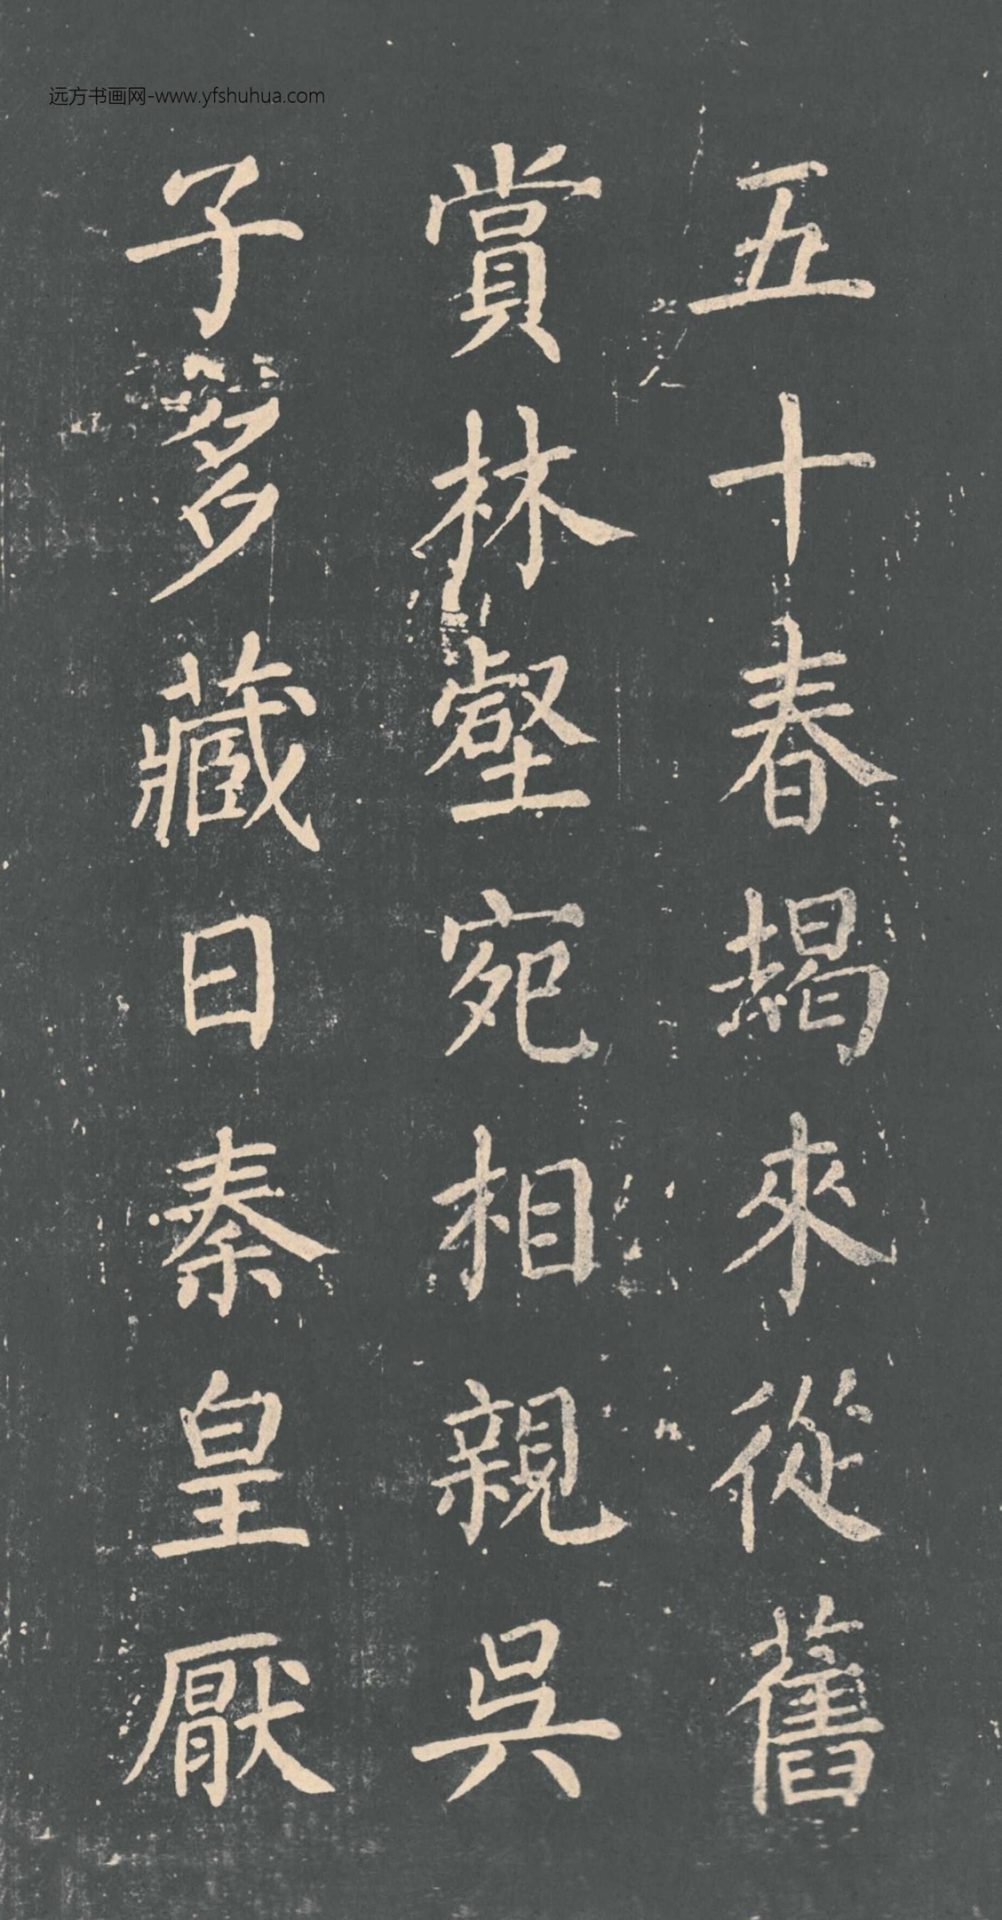 远方书画网-www.yfshuhua.com
五十春朅來從舊
賞林壑宛相親吳
子多藏日秦皇厭